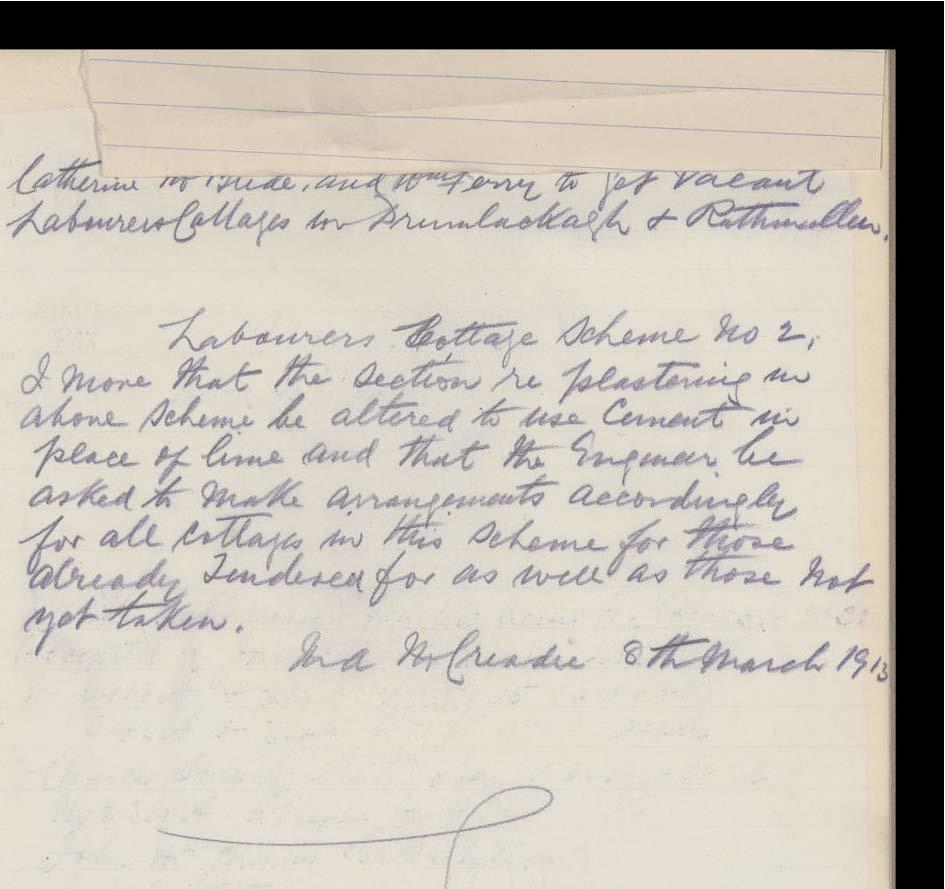 Catherine Mc Bride, and Wm Ferry to get vacant
Labourers Cottages in Drumlackagh & Rathmullen.
Labourers Cottage Scheme No 2,
I move that the section re plastering in
above Scheme be altered to use Cement in
place of lime and that the Engineer be
asked to make arrangements accordingly
for all Cottages in this Scheme for those
already Tendered for as well as those not
yet taken.
McCreadie 8th March 1913